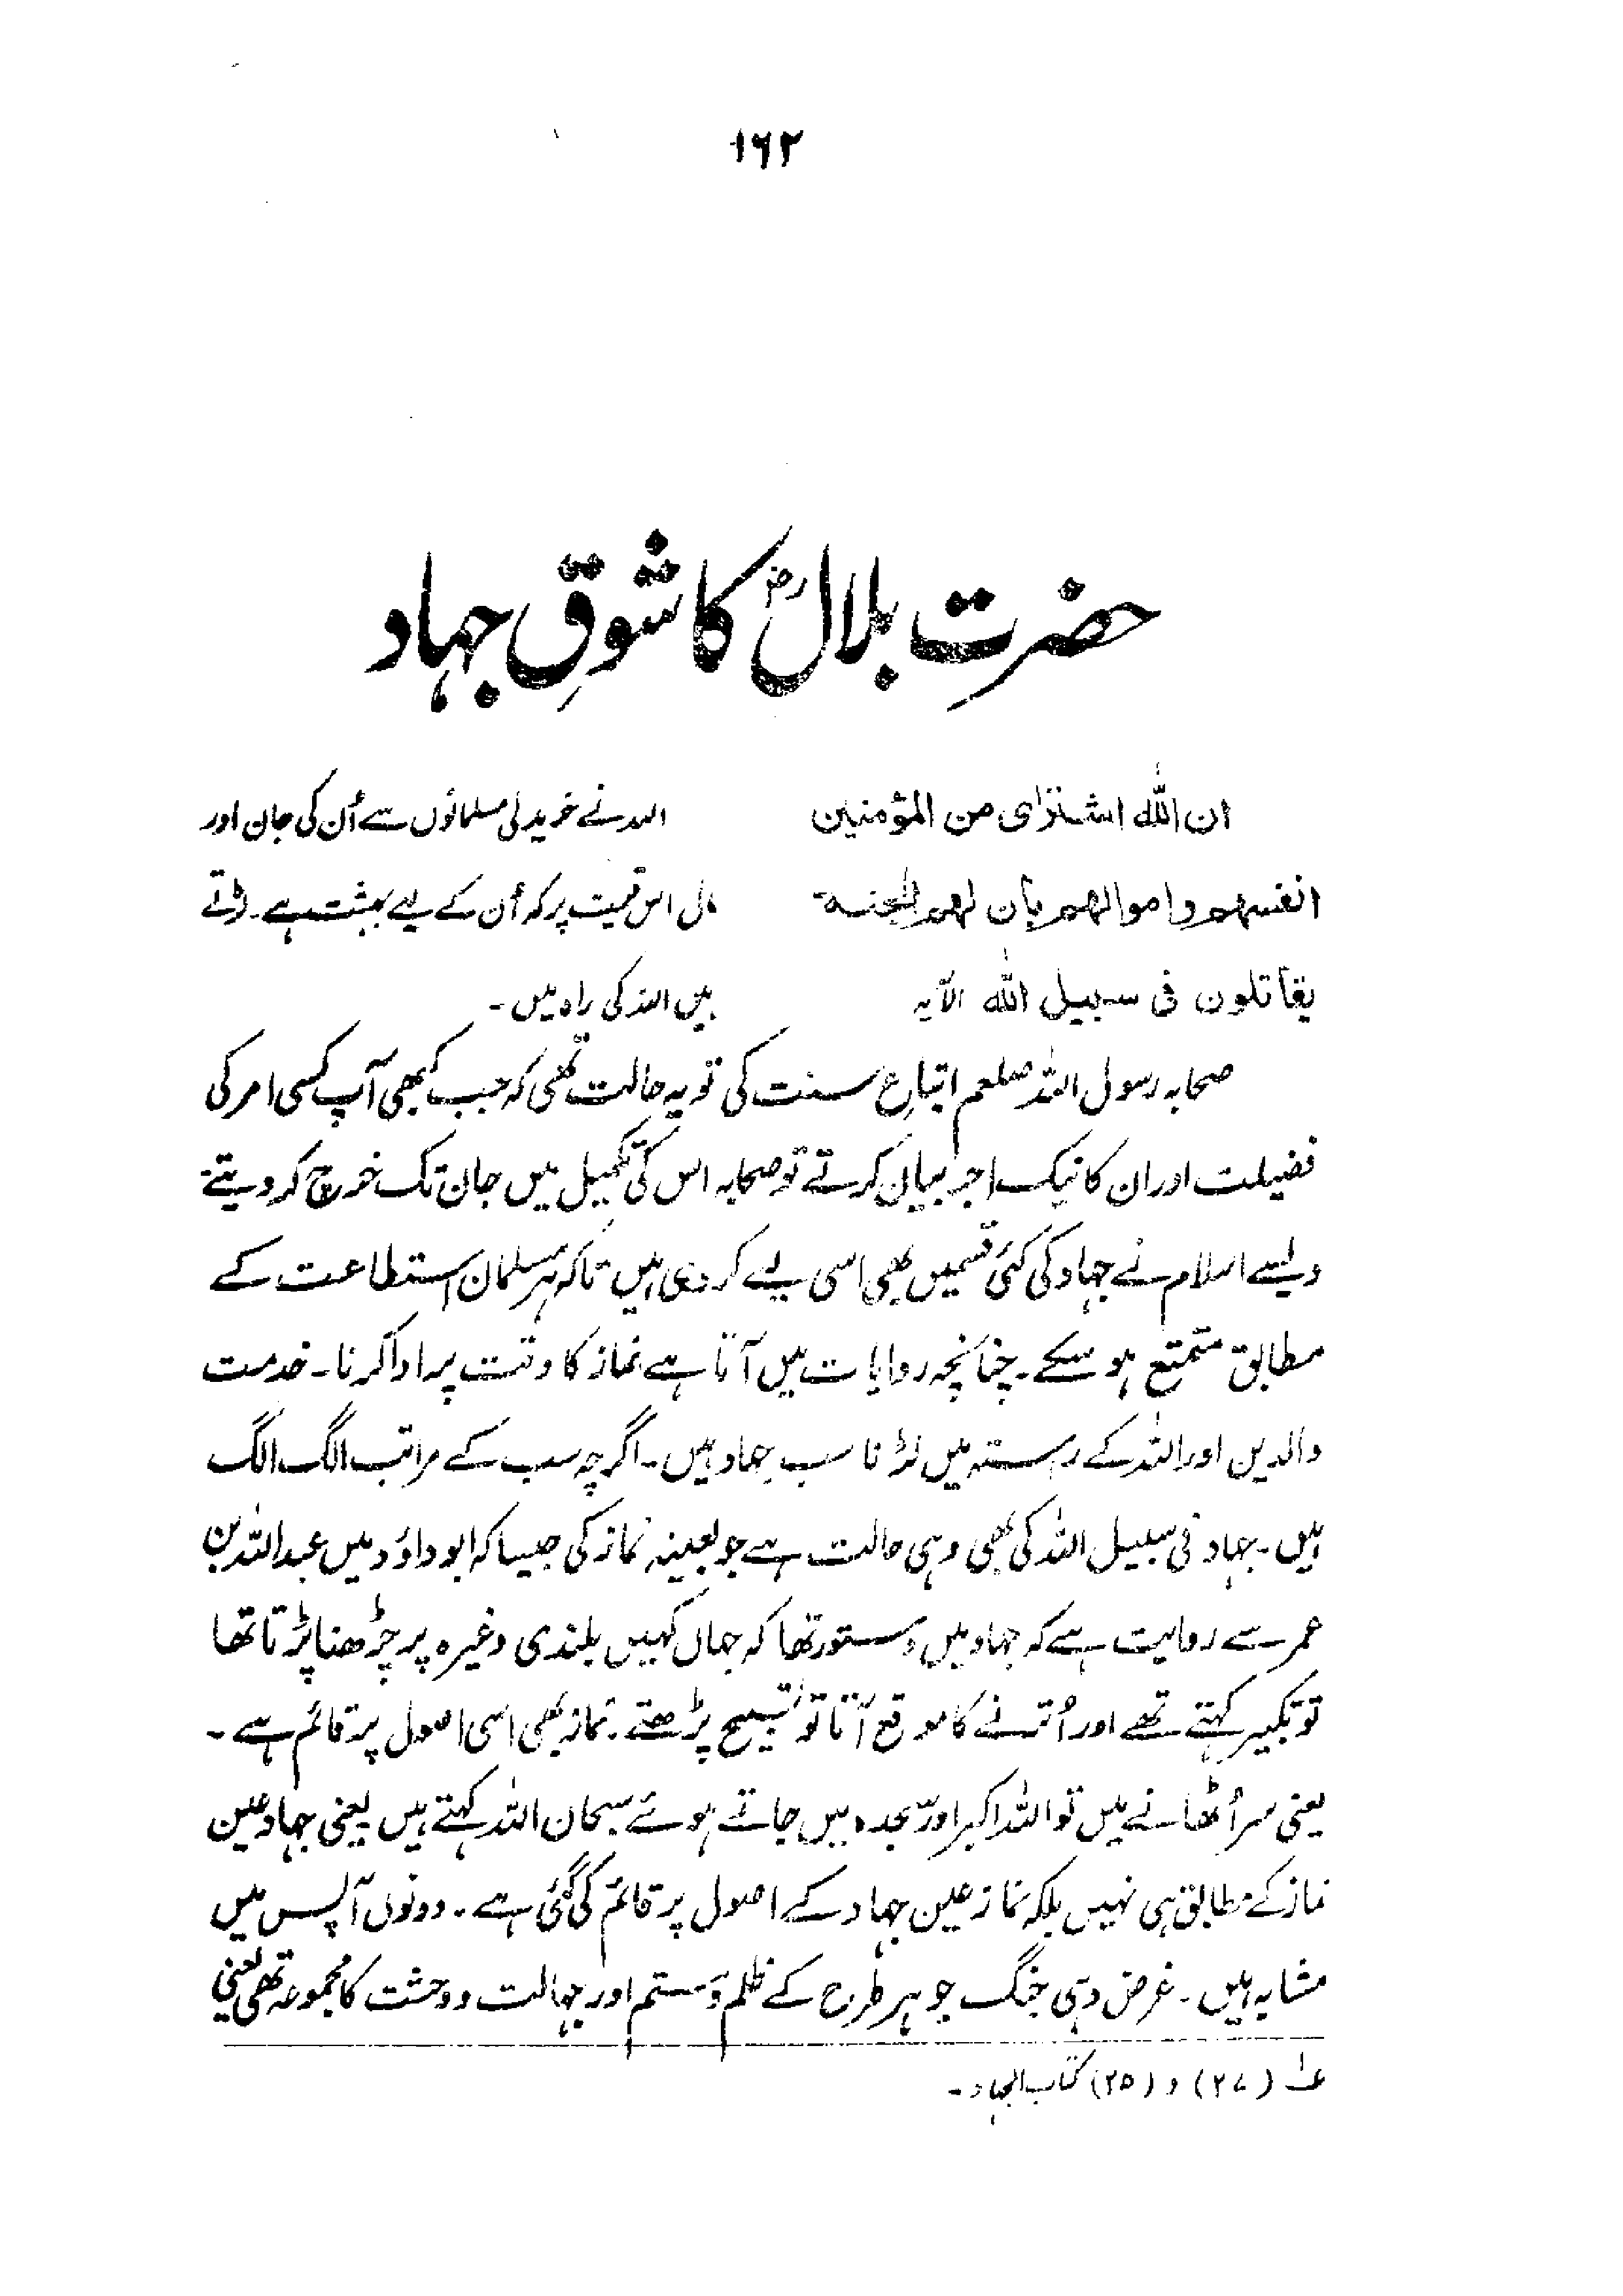 ۱۶۲
حضرتِ بلالؓ کا شوقِ جہاد
ان اللّٰه اشتراى من المؤمنين
اللہ نے خرید لی مسلمانوں سے اُن کی جان اور
انفسهم واموالهم بان لهم الجنة
مال اس قیمت پر کہ اُن کے لیے بہشت ہے۔ لڑتے
يقاتلون فى سبيل اللّٰه الآيه
ہیں اللہ کی راہ میں۔
صحابہ رسول اللہ صلعم اتباعِ سنت کی تو یہ حالت تھی کہ جب کبھی آپ کسی امر کی
فضیلت اور ان کا نیک اجر بیان کرتے تو صحابہ اس کی تکمیل میں جان تک خرچ کر دیتے
ویسے اسلام نے جہاد کی کئی قسمیں بھی اسی لیے کر دی ہیں تاکہ ہر مسلمان استطاعت کے
مطابق متمتع ہو سکے۔ چنانچہ روایات میں آتا ہے نماز کا وقت پر ادا کرنا۔ خدمت
والدین اور اللہ کے رستہ میں لڑنا سب جہاد ہیں۔ اگرچہ سب کے مراتب الگ الگ
ہیں۔ جہاد فی سبیل اللہ کی بھی وہی حالت ہے جو بعینہ نماز کی جیسا کہ ابو داؤد میں عبداللہ بن
عمر سے روایت ہے کہ جہاد میں دستور تھا کہ جہاں کہیں بلندی وغیرہ پر چڑھنا پڑتا تھا
تو تکبیر کہتے تھے اور اُترنے کا موقع آتا تو تسبیح پڑھتے۔ نماز بھی اسی اصول پر قائم ہے۔
یعنی سر اُٹھانے میں تو اللہ اکبر اور سجدہ میں جاتے ہوئے سبحان اللہ کہتے ہیں یعنی جہاد عین
نماز کے مطابق ہی نہیں بلکہ نماز عین جہاد کے اصول پر قائم کی گئی ہے۔ دونوں آپس میں
مشابہ ہیں۔ غرض وہی جنگ جو ہر طرح کے ظلم و ستم اور جہالت و وحشت کا مجموعہ تھی یعنی
؎۱ (۲۷) و (۲۵) کتاب الجہاد۔